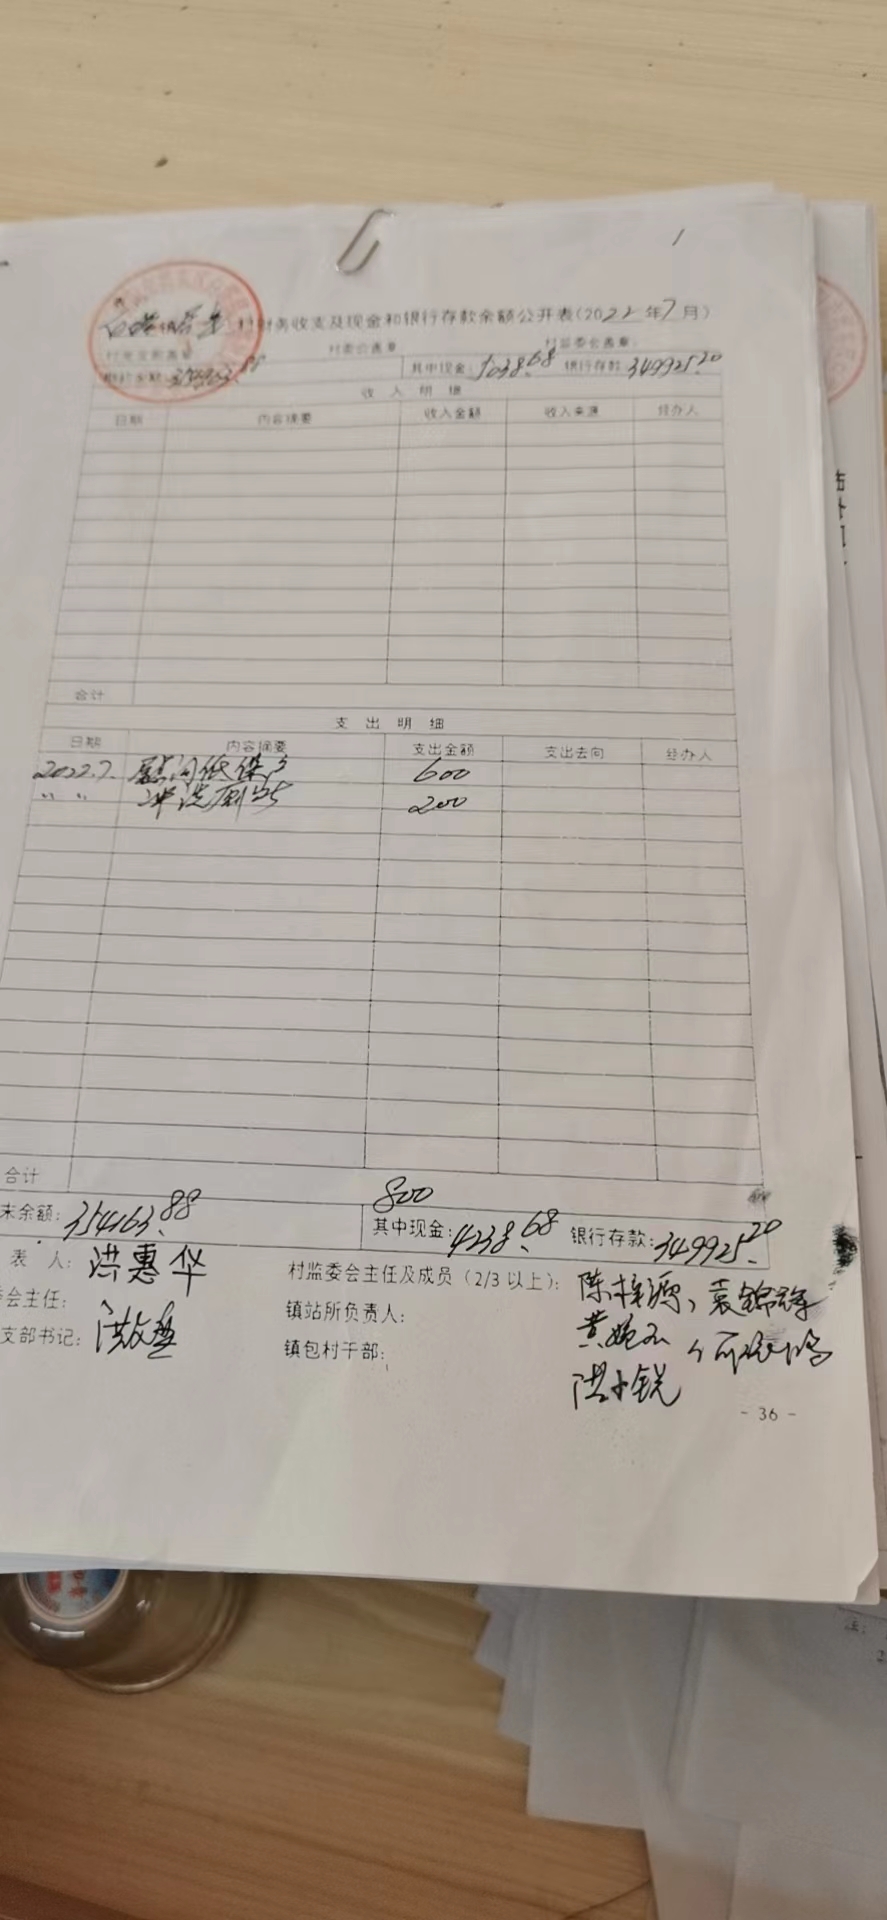 1
村财务收支及现金和银行存款余额公开表(2022年7月)
村党支部盖章: 村委会盖章 村监委会盖章:
期初余额: 其中现金:5038.68 银行存款:349925.20
收入明细
日期 内容摘要 收入金额 收入来源 经办人
合计
支出明细
日期 内容摘要 支出金额 支出去向 经办人
2022.7. 慰问低保户 600
" " 冲洗厕所 200
合计 800
末余额:354163.88 其中现金:4238.68 银行存款:349925.20
表人:洪惠华 村监委会主任及成员(2/3以上):陈梓源、袁锦辉
委会主任: 镇站所负责人:黄
支部书记:洪 镇包村干部: 洪少锐
- 36 -